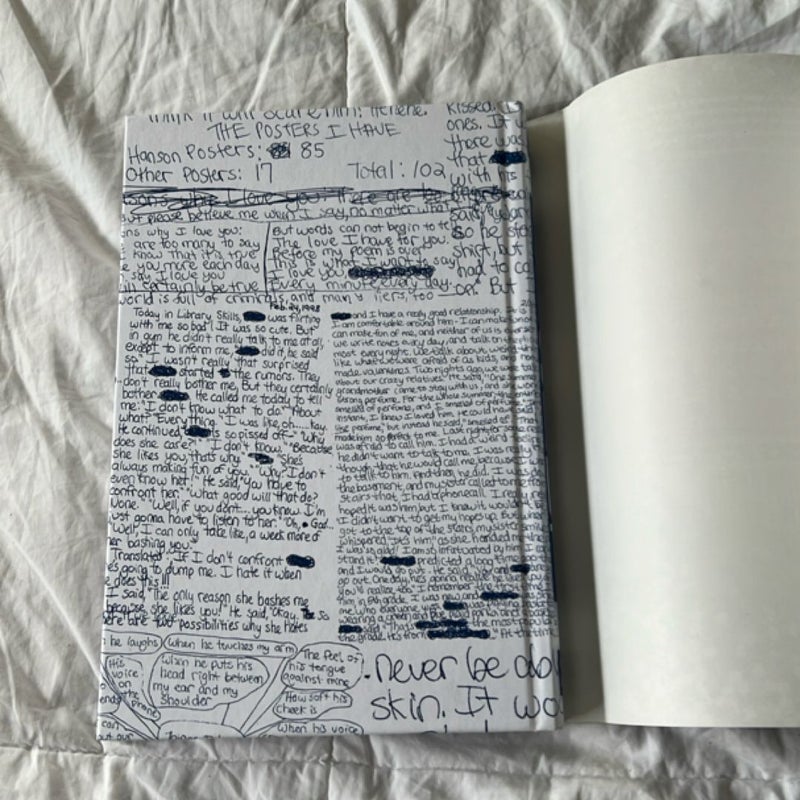 think it will scare him. Helene.
THE POSTERS I HAVE
Hanson Posters: 85
Other Posters: 17 Total: 102
kissed. I
ones. It w
there was
that
with his
so he
shirt, but
had to ca
But
sons why I love you: There are be
But please believe me when I say, no matter what
ns why I love you:
are too many to say
know that it's true
e you more each day
say I love you
ill certainly be true
But words can not begin to te
The love I have for you.
Before my poem is over
This is what I want to say
I love you
Every minute every day.
world is full of criminals, and many liers, too
Feb. 24, 1998
Today in Library Skills, was flirting
with me so bad! It was so cute. But
in gym he didn't really talk to me at all,
except to inform me, did it, he said
so. I wasn't really that surprised
that started the rumors. They
don't really bother me, But they certainly
bother He called me today to tell
me: "I don't know what to do." "About
what?" "Everything." I was like oh.....kay.
He continued is so pissed off-" "Why
does she care?" "I don't know." "Because
she likes you, that's why." "She's
always making fun of you." "Why? I don't
even know her!" He said, "you have to
confront her." "What good will that do?
None." "Well, if you dont....you know I'm
just gonna have to listen to her." "Oh, God...
"Well, I can only take like, a week more of
her bashing you."
Translated: If I don't confront
he's going to dump me. I hate it when
he does this!!!
I said, "The only reason she bashes me
because she likes you! He said, "Okay. So
there are two possibilities why she hates
and I have a really good relationship.
I am comfortable around him- I can make fun of
can make fun of me, and neither of us is over
we write notes every day, and talk on
most every night. We talk about weird
like what we were afraid of as kids, and
made valentines. Two nights ago, we were
about our crazy relatives. He said, "One
grandmother came to stay with us, and she wore
strong perfume. For the whole summer, the entire
smelled of perfume, and I smelled of perfume
instant, I knew I loved him. He could have
like perfume, but instead he said, "smelled of" That
made him so perfect to me. Last night for some
was afraid to call him. I had a weird feeling
he didn't want to talk to me. I was really
though, that he would call me, because I
to talk to him. And then, he did. I was
the basement, and my sister called to me from
stairs that I had a phone call. I really
hoped it was him, but I knew it wouldn't
I didn't want to get my hopes up. But when
got to the top of the stairs, my sister
whispered, "It's him," as she handed me
I was so glad! I am so infatuated by him I
stand it! predicted a long time ago
and I would go out. He said, "You and
go out. One day, he's gonna realize he
you'll realize too." I remember the
him, in 6th grade. I was new and
me who everyone was.
wearing a green
said "That's the most popular
the grade. It's from At the time
he laughs
When he touches my arm
The feel of
his tongue
against mine
His
voice
on
the
phone
When he puts his
head right between
my ear and my
shoulder
How soft his
cheek is
When his voice
can
never be
skin. It wo